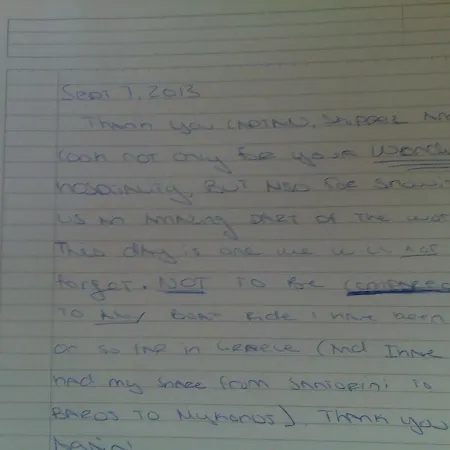 Sept 7, 2013
Thank you Captain, Skipper an
Cook not only for your wonder
hospitality, But also for showi
us an amazing part of the wor
This day is one we will not
forget. NOT to be compared
to any boat ride I have been
on so far in Greece (and I have
had my share from Santorini to
Paros to Mykonos). Thank you
Again!